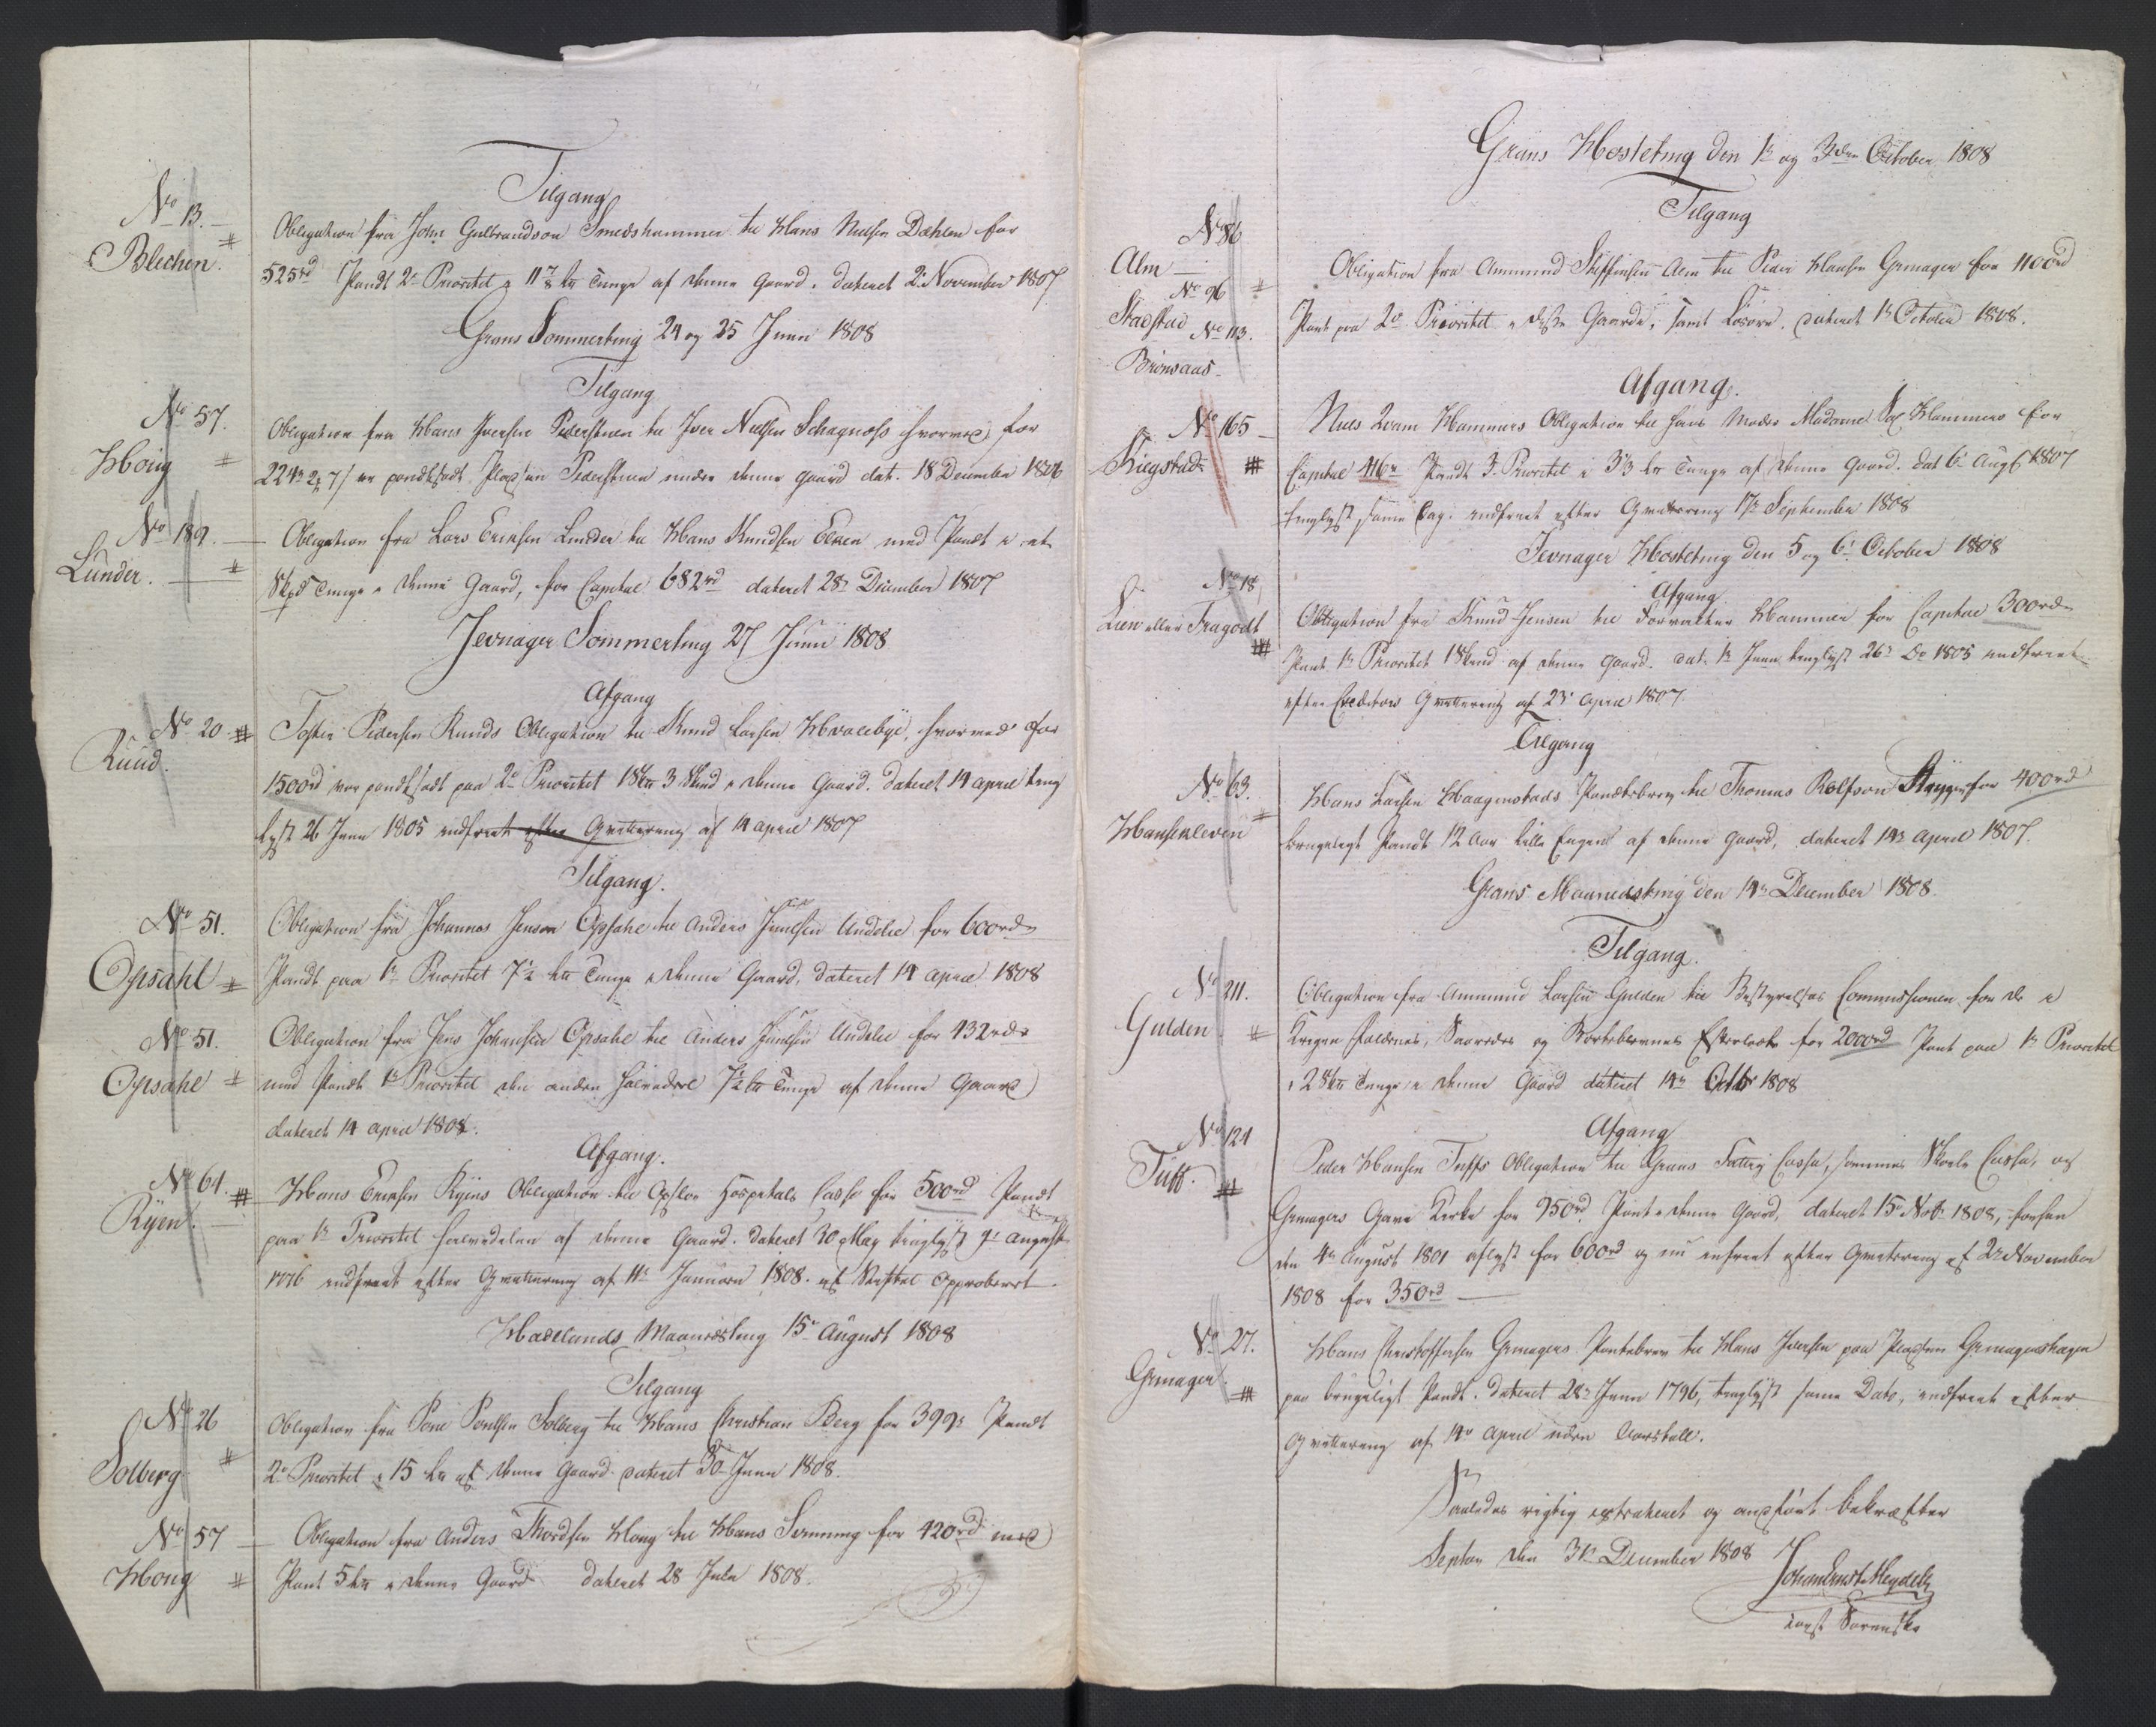 Tilgang
No 13.
Blechen.
Obligation fra John Gulbrandson Smedshammer til Hans Nielsen Dæhlen for
525rd Pandt 2 Prioritet i 11 7/8 Lit Tunge af denne Gaard. dateret 2 November 1807
Grans Sommerting 24 og 25 Junii 1808
Tilgang
No 57.
Houg
Obligation fra Hans Iversen til Iver Nielsen hvorved for
er pandtsadt Pladsen under denne gaard dat. 18 December 1806
No 189.
Lunder.
Obligation fra Lars Erichsen Lunder til Hans Knudsen Elken med Pandt i et
Skpd Tunge i denne Gaard, for Capital 682rd dateret 28 December 1807
Jevnager Sommerting 27 Junii 1808
Afgang
No 20
Ruud.
Pedersen Ruuds Obligation til Knud Larsen Hvalebye, hvorved for
1500rd var pandtsadt paa 2 Prioritet 3 Skind i denne Gaard. dateret 14 April ting
lyst 26 Junii 1805 indfriet efter Qvittering af 14 April 1807
Tilgang.
No 51.
Opsahl
Obligation fra Johannes Jensen Opsahl til Anders Juulsen Undelie for 600rd
Pandt paa 1 Prioritet 7 1/2 Lit Tunge i denne Gaard, dateret 14 April 1808
No 51.
Opsahl
Obligation fra Jens Johansen Opsahl til Anders Juulsen Undelie for 432rd
med Pandt 1 Prioritet den anden halvedeel 7 1/2 Lit Tunge af denne Gaard
dateret 14 April 1808.
Afgang.
No 64.
Ryen.
Hans Erichsen Ryens Obligation til Opsloe Hospitals Casse for 500rd Pandt
paa 1 Prioritet halvedelen af denne Gaard. dateret 30 May tinglyst 9 August
indfriet efter Qvittering af 11 Januarii 1808. af Stiftet Approberet
Hadelands Maanedsting 15 August 1808
Tilgang
No 26
Solberg
Obligation fra Poul Poulsen Solberg til Hans Christian Berg for 399 Pandt
2 Prioritet i 15 Lit af denne Gaard dateret 30 Junii 1808.
No 57
Houg
Obligation fra Anders Thordsen Houg til Hans for 420rd med
Pant 5 Lit i denne Gaard dateret 28 Julii 1808.
Grans Høsteting den 1 og 3den October 1808
Tilgang
No 86
Alm
No 96
Stadstad
No 113.
Brørsaas
Obligation fra Ammund Steffensen Alm til Peder Hansen Grinager for 1100rd
Pant paa 2 Prioritet i disse Gaarde, samt Løsøre. dateret 1 October 1808.
Afgang.
No 165
Kiegstad
Niels Hammers Obligation til hans Moder Madame Hammers for
Capital 416 Pandt 3 Prioritet i Lit Tunge af denne Gaard. dat 6 Aug 1807
tinglyst samme Dag. indfriet efter Qvittering 17 September 1808
Jevnager Høsteting den 5 og 6 October 1808
Afgang
No 18
Lien eller Fragodt
Obligation fra Knud Jensen til Forvalter Hammer for Capital 300rd
Pant 1 Prioritet af denne gaard. dat. 1 Junii tinglyst 26 Do 1805 indfriet
efter Creditors Qvittering af 23 April 1807
Tilgang
No 63.
Hansekleven
Hans Larsen Haagenstads Pandtebrev til Thomas Rolfson for 400rd
brugeligt Pandt 12 Aar af denne gaard, dateret 14 April 1807.
Grans Maanedsting den 14 December 1808
Tilgang.
No 211.
Gulden
Obligation fra Ammund Larsen Gulden til Bestyrelses Commissionen for de i
Krigen Faldnes, Saaredes og Efterladte for 2000rd Pant paa 1 Prioritet
i denne Gaard dateret 14 Octbr 1808
Afgang
No 124
Tuft.
Peder Hansen Tufts Obligation til Grans Fattig Casse, sammes Skole Casse, og
Grinagers Gave Kirke for 950rd Pant i denne Gaard, dateret 15 Novbr 1808, forhen
den 4 August 1801 aflyst for 600rd og nu indfriet efter Qvittering af 2 November
1808 for 350rd
No 27.
Grinager.
Hans Christophersen Grinagers Pantebrev til Hans Iversen paa Pladsen Grinagershagen
paa brugeligt Pandt. dateret 28 Junii 1796, tinglyst samme Dato, indfriet efter
Qvittering af 14 April uden Aarstall.
Saaledes rigtig extraheret og anført bekræfter
den 31 December 1808
Johan Ernst Heydeh
const Sorensk.